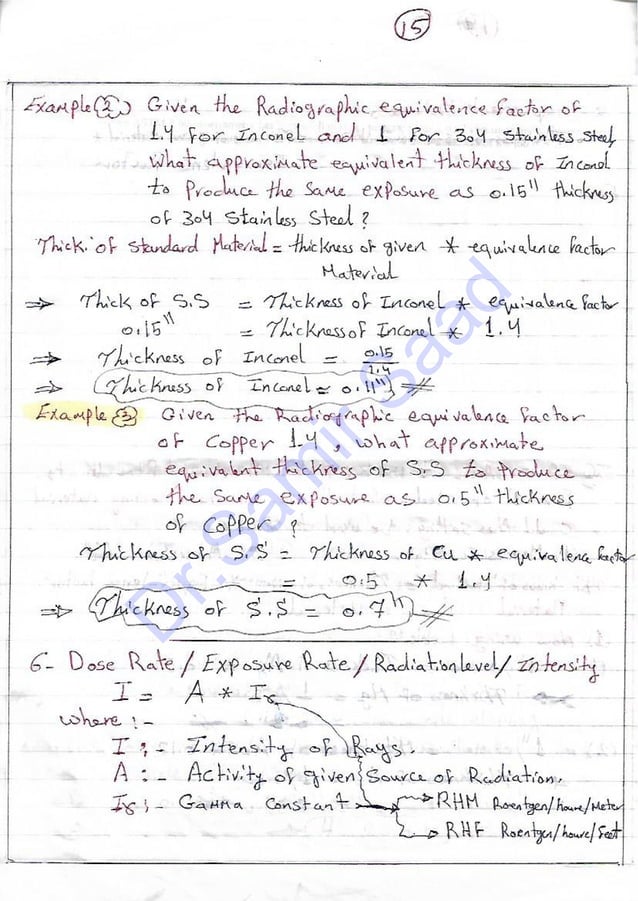 15
Example (2) Given the Radiographic equivalence factor of
1.4 for Inconel and 1 for 304 stainless steel,
What approximate equivalent thickness of Inconel
to Produce the Same exposure as 0.15" thickness
of 304 Stainless Steel ?
Thick. of standard Material = thickness of given * equivalence factor
Material
⇒ Thick of S.S = Thickness of Inconel * equivalence factor
0.15" = Thickness of Inconel * 1.4
⇒ Thickness of Inconel = 0.15
1.4
⇒ Thickness of Inconel ≈ 0.11"
Example (3) Given the Radiographic equivalence factor
of Copper 1.4 , what approximate
equivalent thickness of S.S to Produce
the Same exposure as 0.5" thickness
of Copper ?
Thickness of S.S = Thickness of Cu * equivalence factor
= 0.5 * 1.4
⇒ Thickness of S.S = 0.7"
6- Dose Rate / Exposure Rate / Radiation level / Intensity
I = A * Iγ
where :-
I :- Intensity of Rays.
A :- Activity of given Source of Radiation.
Iγ :- Gamma Constant → RHM Roentgen/houre/Meter
→ RHF Roentgen/houre/Feet
Dr.Samir Saad